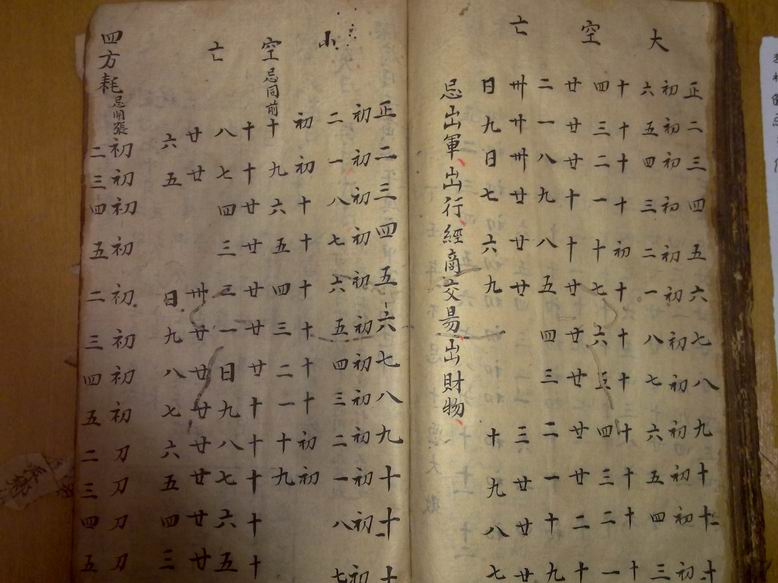 大空亡
正二三四五六七八九十十一十
初初初初初初初初初初初初
六五四三二一八七六五四三
十十十十初十十十十十十十
四三二一十七六五四三二一
廿廿廿十十廿廿廿廿廿十十
二一八九八五四三二一十九
卅廿卅廿廿廿廿廿廿
日九日七六九十九八七
忌出軍出行經商交易出財物
小空亡
忌同前
正二三四五六七八九十十一十
初初初初初初初初初初初初
二一八七六五四三二一八七
初初十十十十十十初初
十九六五四三二一十九
十十廿廿廿廿廿十十十十十
八七四三二一日九八七六五
廿廿卅廿廿廿廿廿廿廿
六五日九八七六五四三
四方耗
忌開張
初初初初初初初初刀刀刀刀
二三四五二三四五二三四五